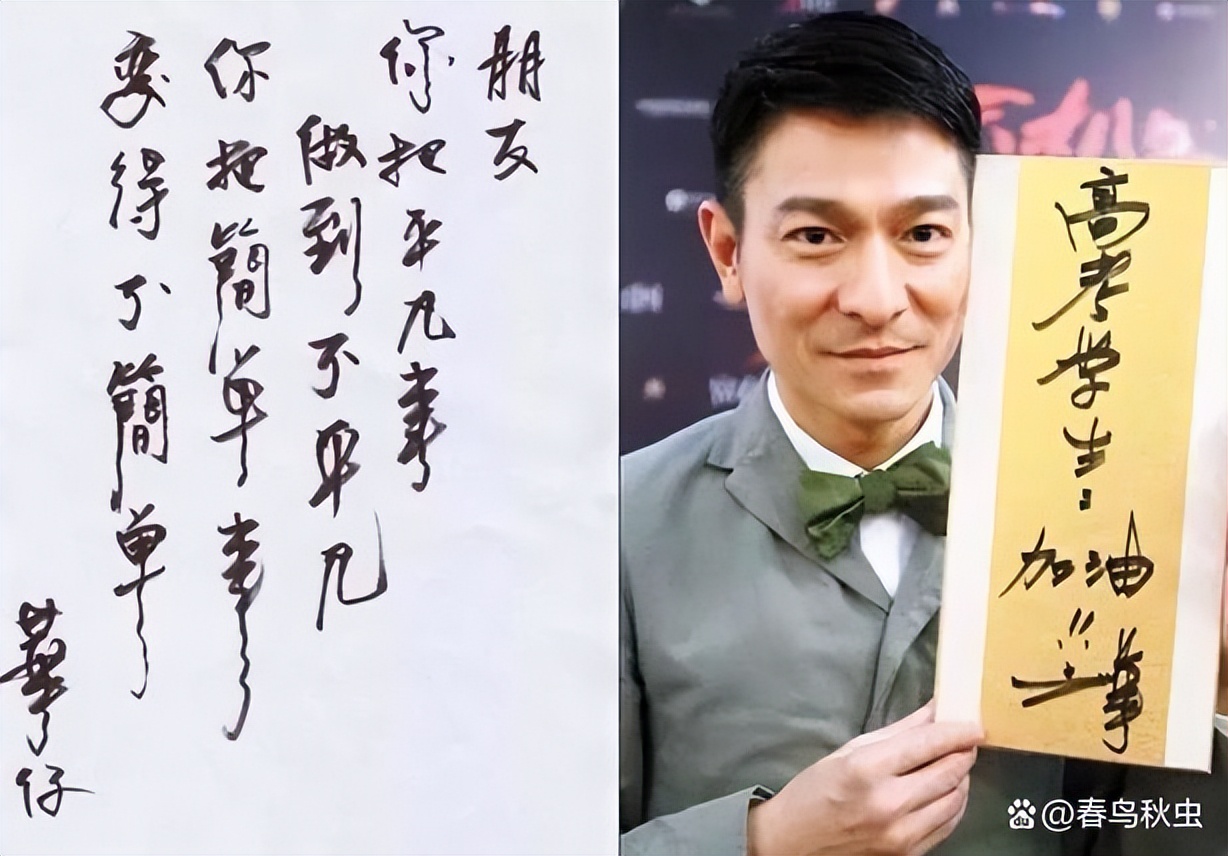 朋友
你把平凡事
做到不平凡
你把簡单事
变得不簡单
華仔
高考学生：
加油!!
du @春鸟秋虫